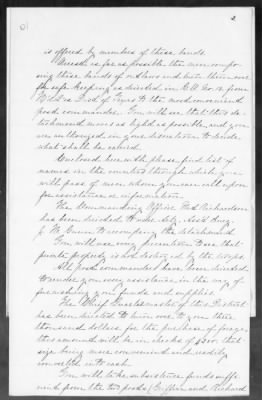 2
is offered by members of these bands.
Arrest as far as possible the men compo-
sing these bands of outlaws and turn them over
for safe keeping as directed in G.O. No. 18. from
Hd Qrs Dist of Texas to the most convenient
post commander. You will see that this de-
tachment moves as light as possible, and you
are authorized in your discretion to decide
what shall be carried.
Enclosed herewith please find list of
names in the counties through which you
will pass of men whom you can call upon
for assistance or information.
The Commanding Officer Fort Richardson
has been directed to order Actg. Asst Surg.
J. H. to accompany the detachment.
You will use every precaution to see that
private property is not destroyed by the troops.
All post commanders have been directed
to render you every assistance in the way of
furnishing you guides and supplies.
The Chief Quartermaster of this District
has been directed to turn over to you three
thousand dollars for the purchase of forage,
this amount will be in checks of $300. that
size being more convenient and readily
convertible into cash.
You will take subsistence funds suffi-
cient from the two posts (Griffin and Richard